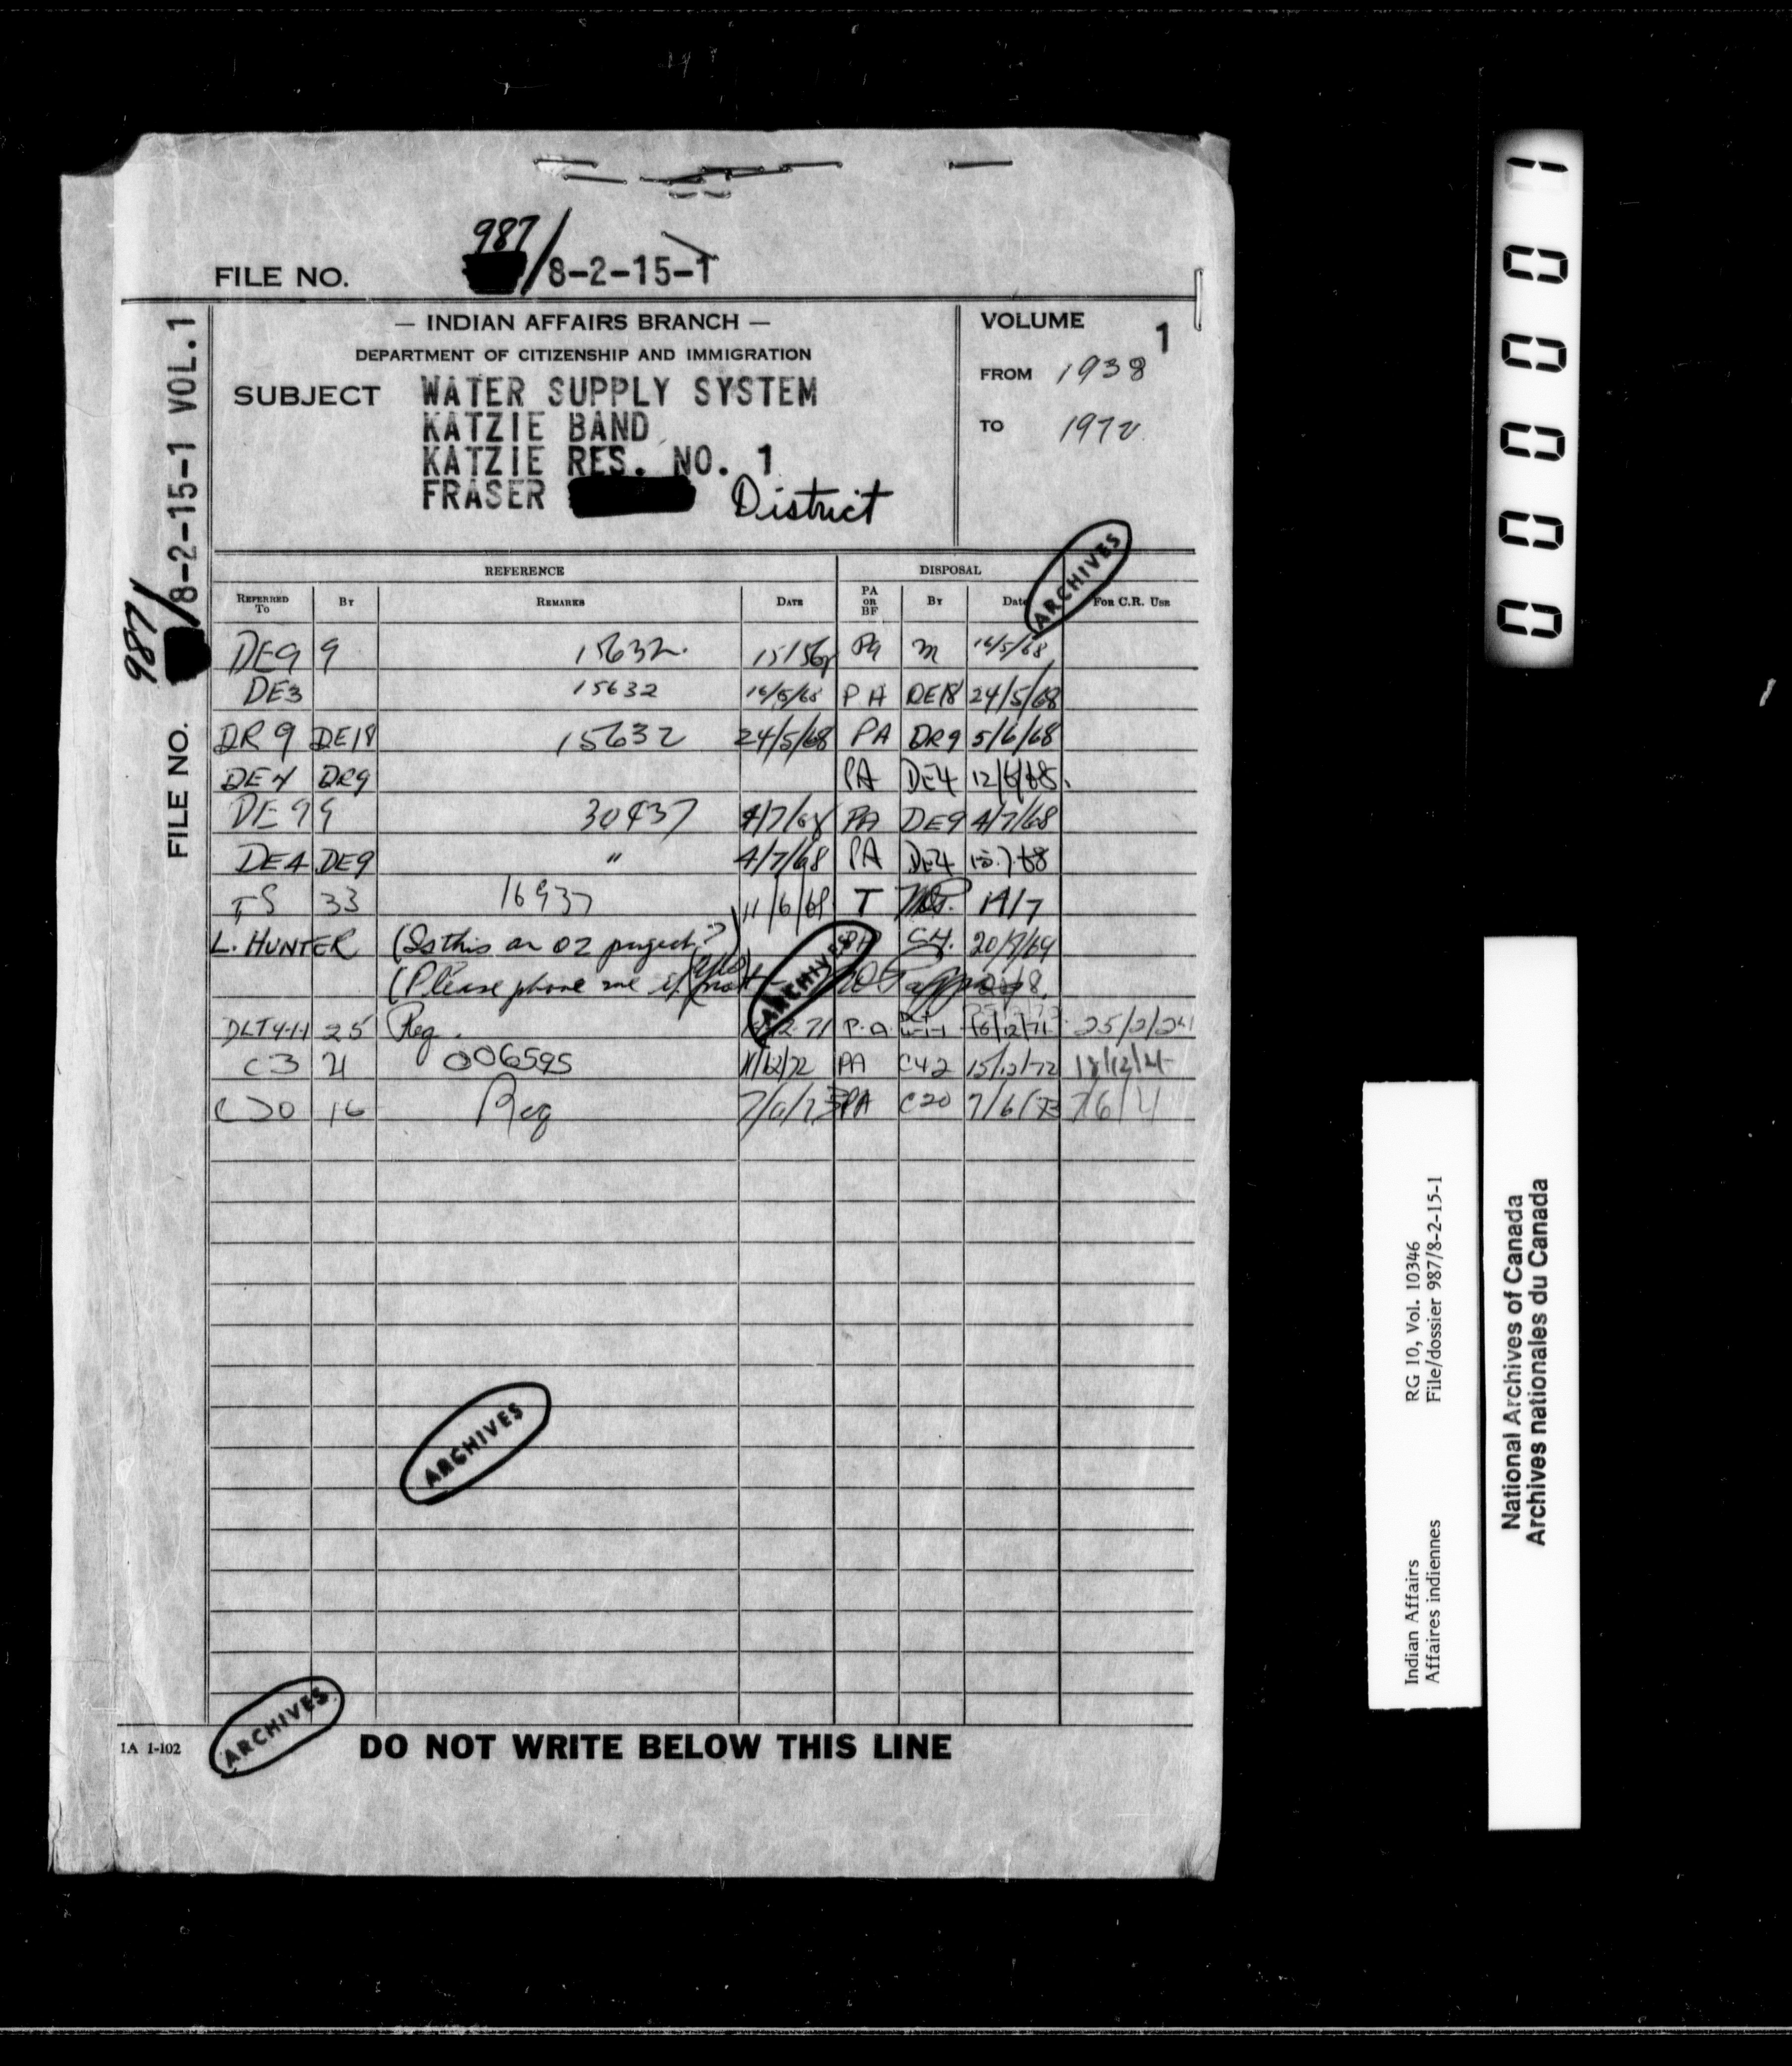 987
FILE NO. /8-2-15-1
— INDIAN AFFAIRS BRANCH —
DEPARTMENT OF CITIZENSHIP AND IMMIGRATION
SUBJECT WATER SUPPLY SYSTEM
KATZIE BAND
KATZIE RES. NO. 1
FRASER District
VOLUME 1
FROM 1938
TO 1972
987/8-2-15-1 VOL.1
FILE NO.
REFERENCE DISPOSAL
REFERRED TO BY REMARKS DATE PA OR BF BY DATE FOR C.R. USE
ARCHIVES
DE9 9 15632. PA M 16/5/68
DE3 15632 16/5/68 PA DE18 24/5/68
DR9 DE18 15632 24/5/68 PA DR9 5/6/68
DE4 DR9 PA DE4 12/6/68.
DE9 9 30437 4/7/68 PA DE9 4/7/68
DE4 DE9 " 4/7/68 PA DE4 15.7.68
TS 33 16937 11/6/69 T 14/7
L. HUNTER (Is this an 02 project?) PA 20/7/69
(Please phone me if not
ARCHIVES
DLT4-1-1 25 Reg. 71 P.A. 16/12/71 25/2/24
C3 21 006595 11/12/72 PA C42 15/12/72
C20 16 Reg 7/6/73 PA C20 7/6/73 7/6/4
ARCHIVES
ARCHIVES
IA 1-102 DO NOT WRITE BELOW THIS LINE
000001
Indian Affairs RG 10, Vol. 10346
Affaires indiennes File/dossier 987/8-2-15-1
National Archives of Canada
Archives nationales du Canada